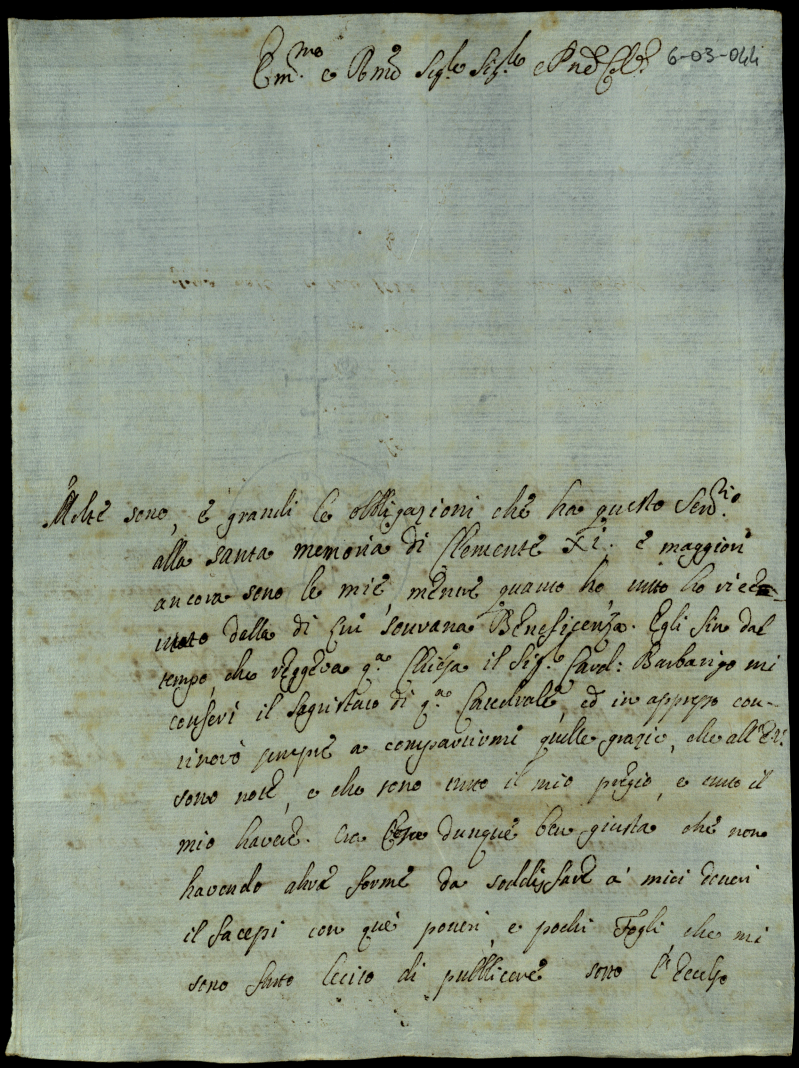 Em.mo e Rmo Sig.re Sig.re e Pne Col.mo 6-03-044
Molte sono, è grandi le obbligazioni che ha questo Sem.rio
alla santa memoria di Clemente XI. è maggiori
ancora sono le mie mentre quanto hò tutto ho rice-
uuto dalla di cui souvana Beneficenza. Egli sin dal
tempo, che reggeva q.a Chiesa il Sig.re Card: Barbarigo mi
conferì il Sagristato di q.a Cattedrale, ed in appresso con-
tinovò sempre a compartirmi quelle grazie, che all'E.V.
sono note, e che sono tutto il mio pregio, e tutto il
mio havere. Era dunque ben giusta che non
havendo altre forme da soddisfare a' miei doueri
il facessi con què poueri, e pochi Fogli che mi
sono fatto lecito di pubblicare sotto l'Eccelso